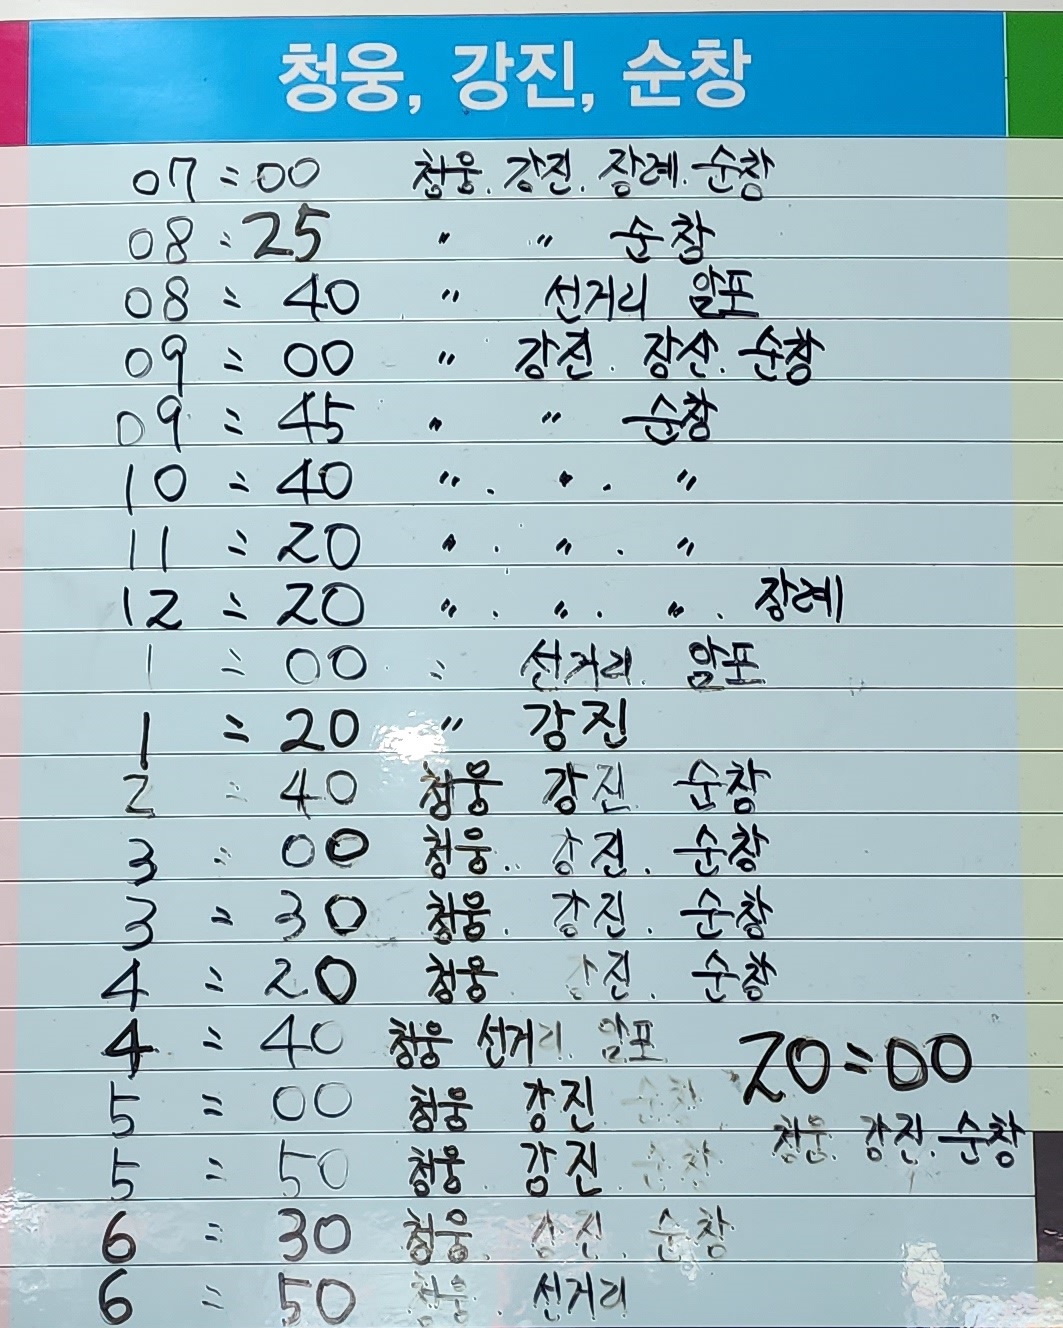 청웅, 강진, 순창
07:00 청웅. 강진. 장례. 순창
08:25 〃 〃 순창
08:40 〃 선거리 암포
09:00 〃 강진. 장산. 순창
09:45 〃 〃 순창
10:40 〃. 〃. 〃
11:20 〃. 〃. 〃
12:20 〃. 〃. 〃. 장례
1:00 〃 선거리. 암포
1:20 〃 강진
2:40 청웅 강진 순창
3:00 청웅. 강진. 순창
3:30 청웅. 강진. 순창
4:20 청웅. 강진. 순창
4:40 청웅 선거리. 암포
5:00 청웅 강진. 순창
5:50 청웅. 강진. 순창
6:30 청웅. 강진. 순창
6:50 청웅. 선거리
20:00
청웅. 강진. 순창